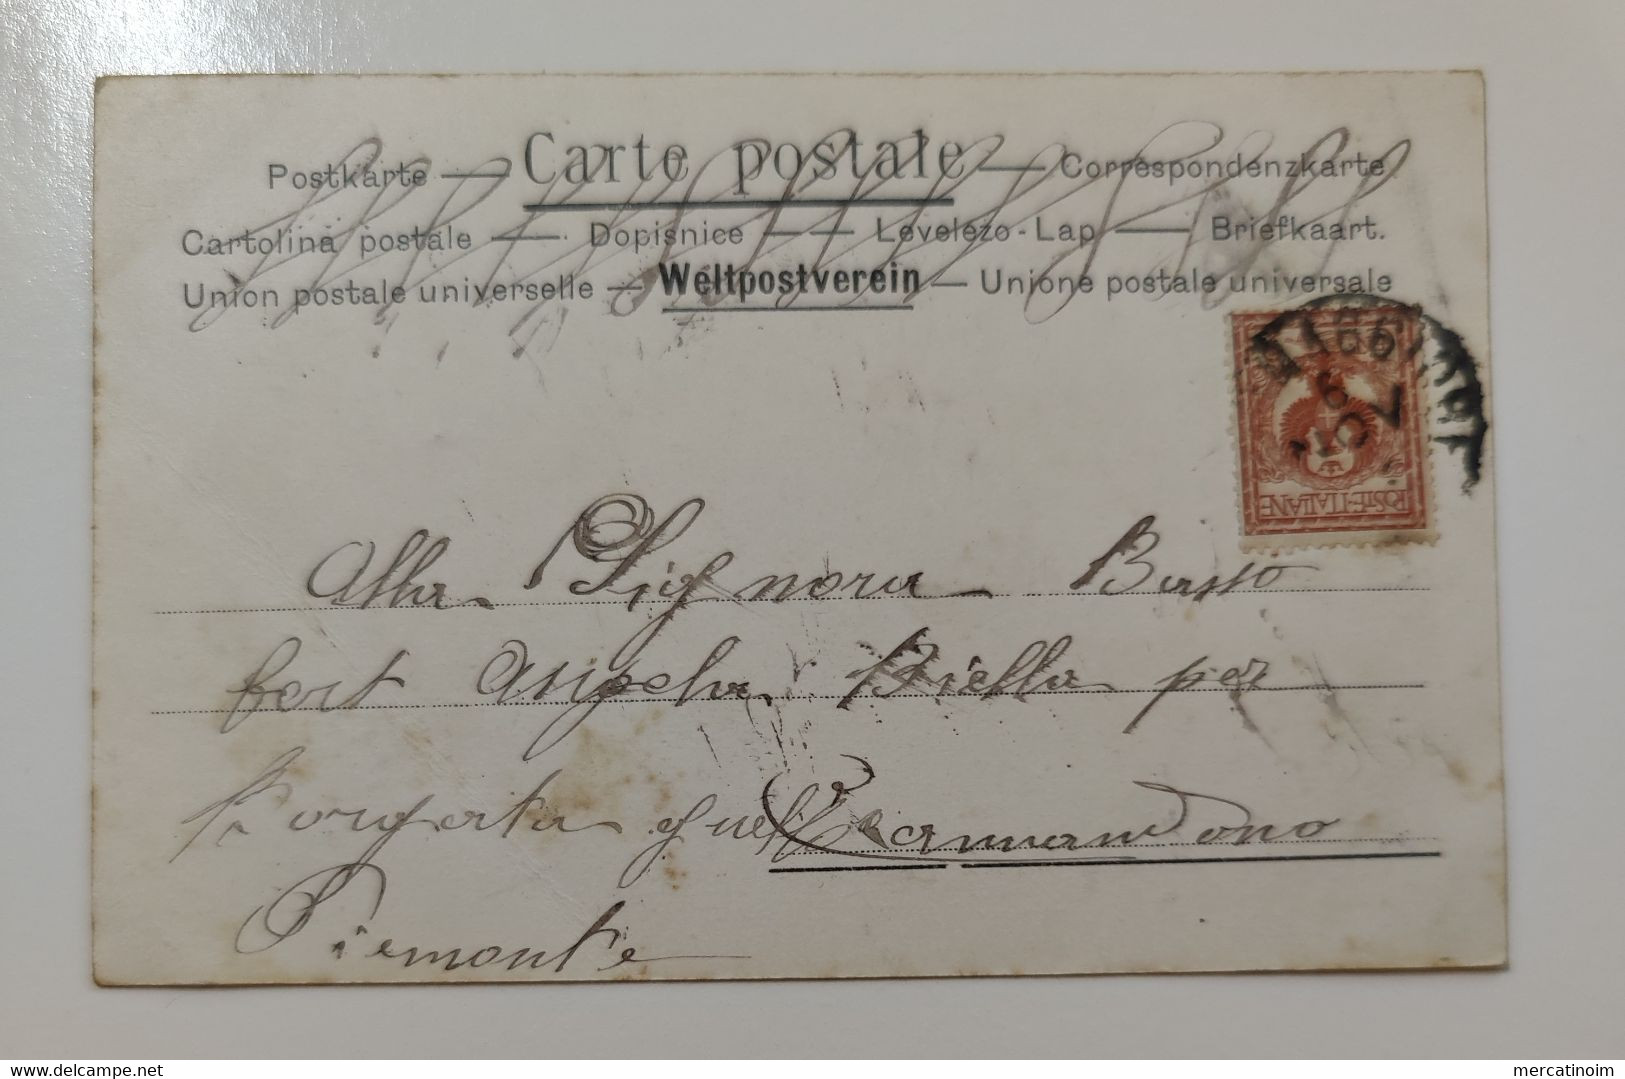 Postkarte — Carte postale — Correspondenzkarte
Cartolina postale — Dopisnice — — Levelezo-Lap — Briefkaart.
Union postale universelle — Weltpostverein — Unione postale universale
POSTE·ITALIANE
Alla Signora Basso
fert Angela Biella per
Camandono
Piemonte
delcampe.net
mercatinoim